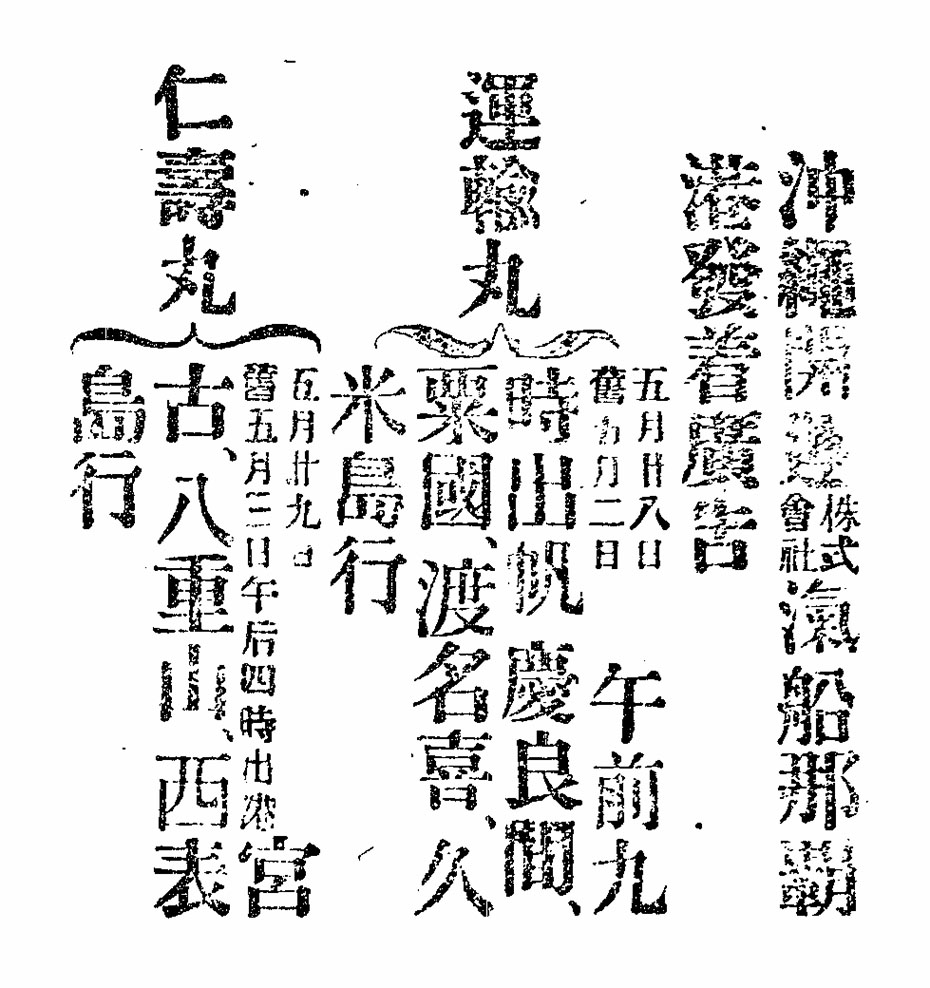 沖繩開運株式會社滊船那覇
港發着廣告
運輸丸
五月廿八日
舊五月二日
午前九
時出帆 慶良間、
粟國、渡名喜、久
米島行
仁壽丸
五月廿九日
舊五月三日午后四時出港
宮
古、八重山、西表
島行